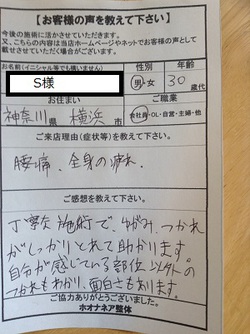 【お客様の声を教えて下さい】
今後の施術に活かさせていただきます。
又、こちらの内容は当店ホームページやネットでお客様の声として
載せさせていただく場合がございます。
お名前(イニシャル等でも構いません) 性別 年齢
S様 男・女 30歳代
お住まい ご職業
神奈川県 横浜市 会社員・OL・自営・主婦・他
ご来店理由(症状等)を教えて下さい。
腰痛、全身の疲れ
ご感想を教えて下さい。
丁寧な施術で、ゆがみ、つかれ
がしっかりとれて助かります。
自分が感じている部位以外の
つかれもわかり、面白さもあります。
ご協力ありがとうございました。
ホオナネア整体